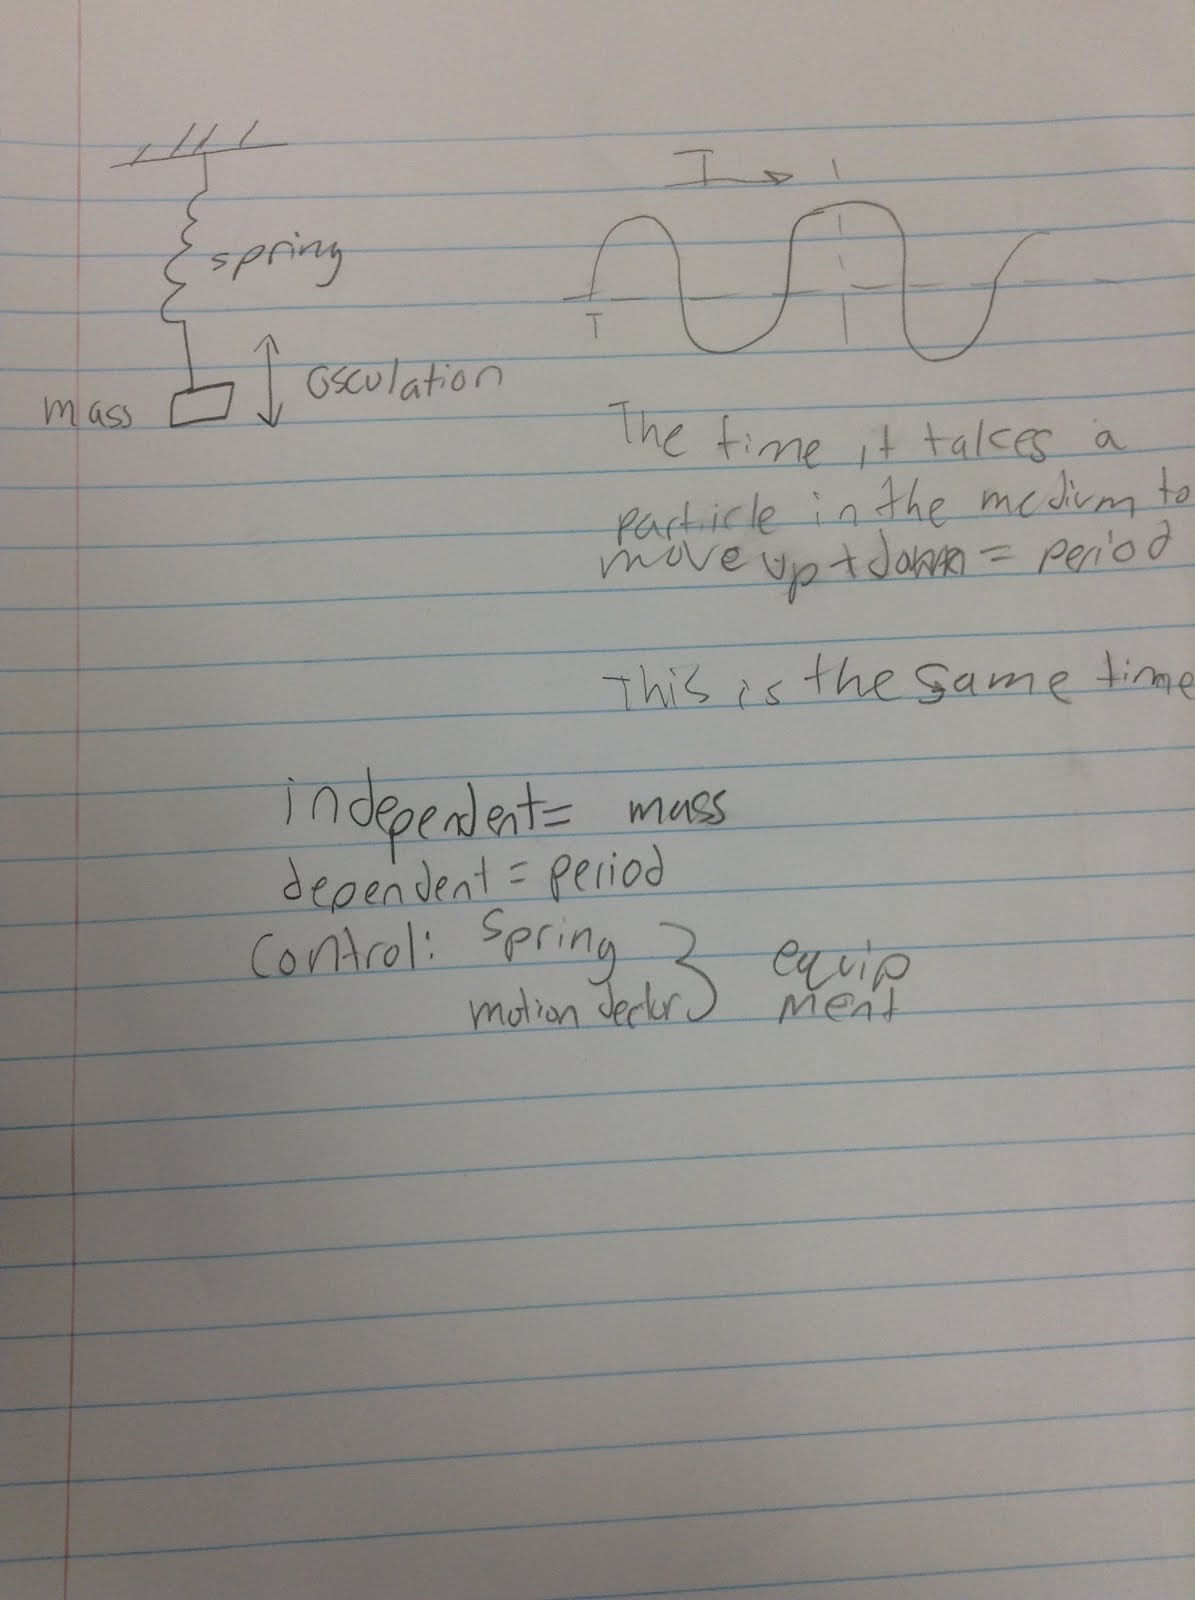 spring
mass
osculation
T
The time it takes a
particle in the medium to
move up + down = period
This is the same time
independent = mass
dependent = period
control: spring
motion dector
equip
ment